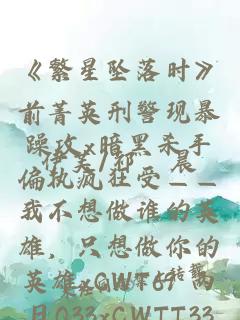 《繁星坠落时》
前菁英刑警现暴
躁攻x暗黑杀手
偏执疯狂受——
我不想做谁的英
雄，只想做你的
英雄。CWT67 两
日O33xCWTT33